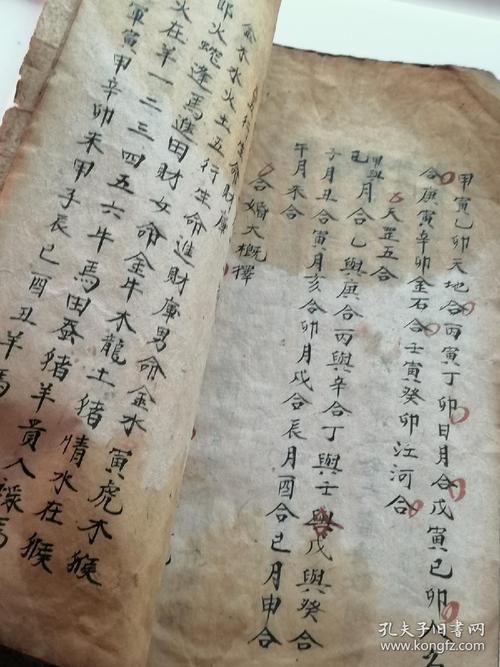 甲寅已卯天地合丙寅丁卯日月合戊寅已卯人
合庚寅辛卯金石合壬寅癸卯江河合
天罡五合
甲與
已月合乙與庚合丙與辛合丁與壬與戊與癸合
子月丑合寅月亥合卯月戌合辰月酉合已月申合
午月未合
合婚大概擇
行生命財庫
金木水火土五行生命進財庫男命金水寅虎木猴
火蛇逢馬進田財女命金牛木龍土猪情水在猴
火在羊一二三四五六牛馬田蚕猪羊貴人祿馬
寅甲辛卯未甲子辰已酉丑羊
孔夫子旧书网
www.kongfz.com